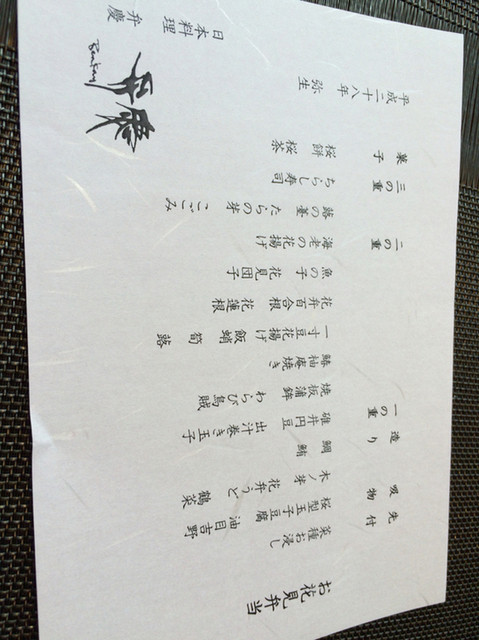 お花見弁当
先付 菜種お浸し
吸物 桜型玉子豆腐 油目吉野 鶴菜
花弁うど
木ノ芽
造り 鯛 鮪
一の重 碓井円豆 出汁巻き玉子
焼板蒲鉾 わらび烏賊
鰆柚庵焼き
一寸豆花揚げ 飯蛸 筍 蕗
花弁百合根 花蓮根
魚の子 花見団子
二の重 海老の花揚げ
蕗の薹 たらの芽 こごみ
三の重 ちらし寿司
菓子 桜餅 桜茶
平成二十八年 弥生
日本料理 弁慶
弁慶
Benkay